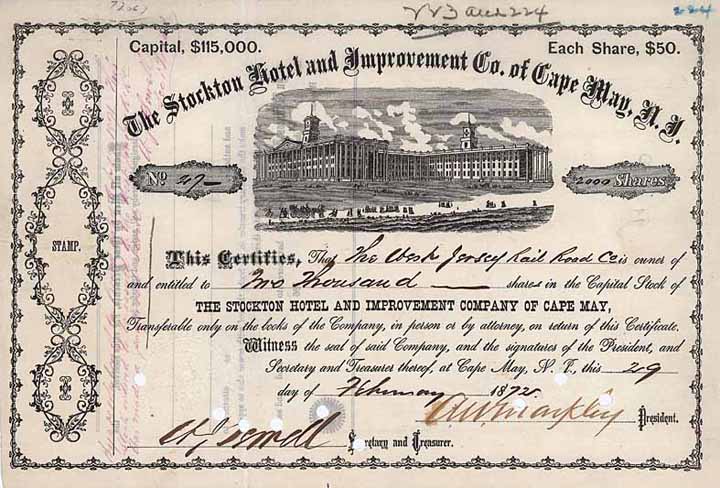 223 and 224
224
Capital, $115,000.
Each Share, $50.
The Stockton Hotel and Improvement Co. of Cape May, N. J.
No 27
2000 Shares
STAMP.
This Certifies, That The West Jersey Rail Road Co is owner of
and entitled to Two Thousand shares in the Capital Stock of
THE STOCKTON HOTEL AND IMPROVEMENT COMPANY OF CAPE MAY,
Transferable only on the books of the Company, in person or by attorney, on return of this Certificate.
Witness the seal of said Company, and the signatures of the President, and
Secretary and Treasurer thereof, at Cape May, N. J., this 29
day of February 1872.
President.
Secretary and Treasurer.